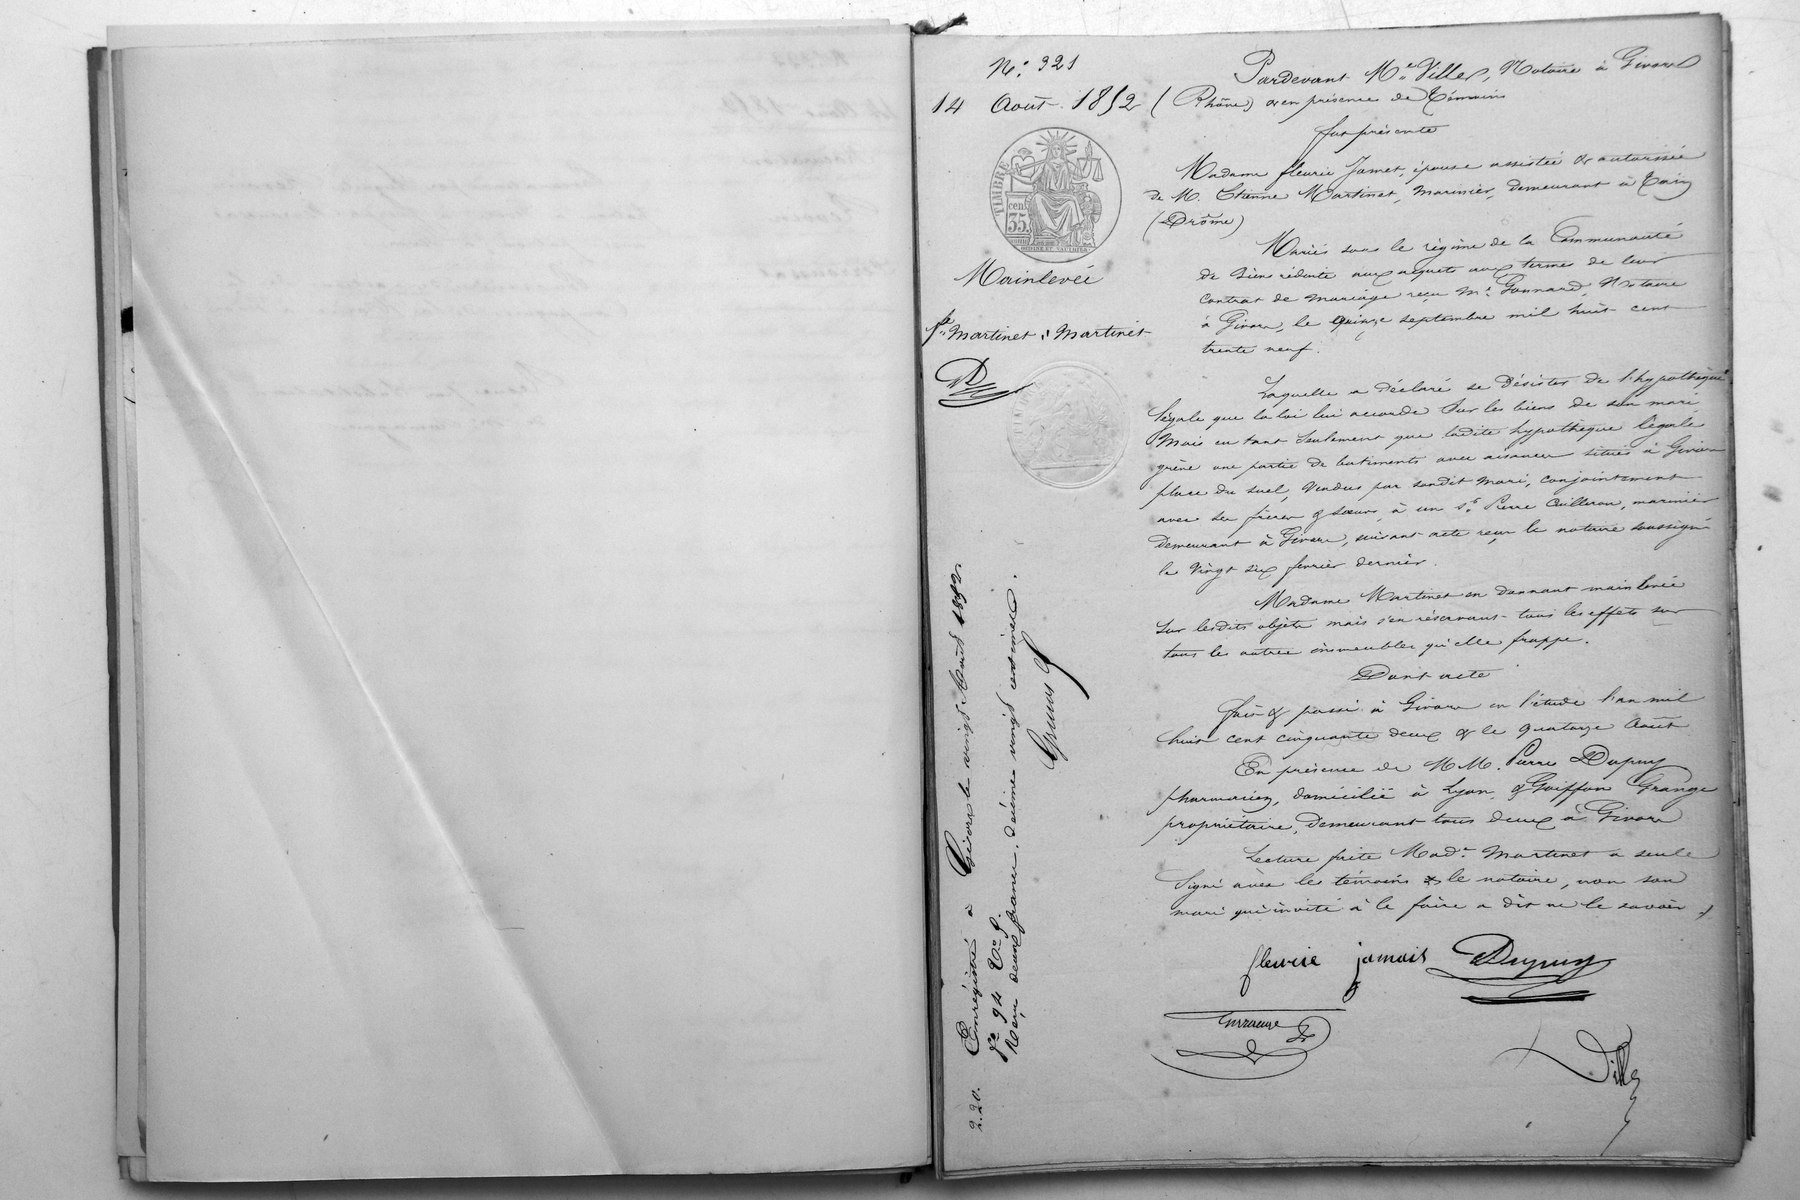 N.° 321
14 Août 1852
TIMBRE
cent
35
Mainlevée
fe Martinet à Martinet
Pardevant Me Ville, Notaire à Givors
(Rhône) & en présence de témoins
fut présente
Madame fleurie Jamet, épouse assistée & autorisée
de M. Etienne Martinet, Marinier, demeurant à Tain
(Drôme)
Mariés sous le régime de la Communauté
de biens réduite aux acquets aux termes de leur
contrat de mariage reçu Me Gonnard, Notaire
à Givors, le quinze septembre mil huit cent
trente neuf.
Laquelle a déclaré se désister de l'hypothèque
légale que la loi lui accorde sur les biens de son mari
Mais en tant seulement que ladite hypothèque légale
grève une partie de batiments avec aisances situés à Givors
place du suel, vendus par sondit mari, conjointement
avec ses frères & sœurs, à un sr Pierre Cuilleron, marinier
demeurant à Givors, suivant acte reçu le notaire soussigné
le vingt six fevrier dernier.
Madame Martinet en donnant mainlevée
sur lesdits objets mais s'en réservant tous les effets sur
tous les autres immeubles qu'elle frappe.
Dont acte
fait & passé à Givors en l'étude l'an mil
huit cent cinquante deux & le quatorze Août
En présence de MM. Pierre Dupuy
pharmacien, domicilié à Lyon, & Goiffon Grange
propriétaire, demeurant tous deux à Givors
Lecture faite Made Martinet a seule
signé avec les témoins & le notaire, non son
mari qui invité à le faire a dit ne le savoir
fleurie jamais Dupuy
Ville
Enregistré à Givors le vingt Août 1852
fo 94 Vo
Reçu deux francs, décime vingt centimes.
2.20.